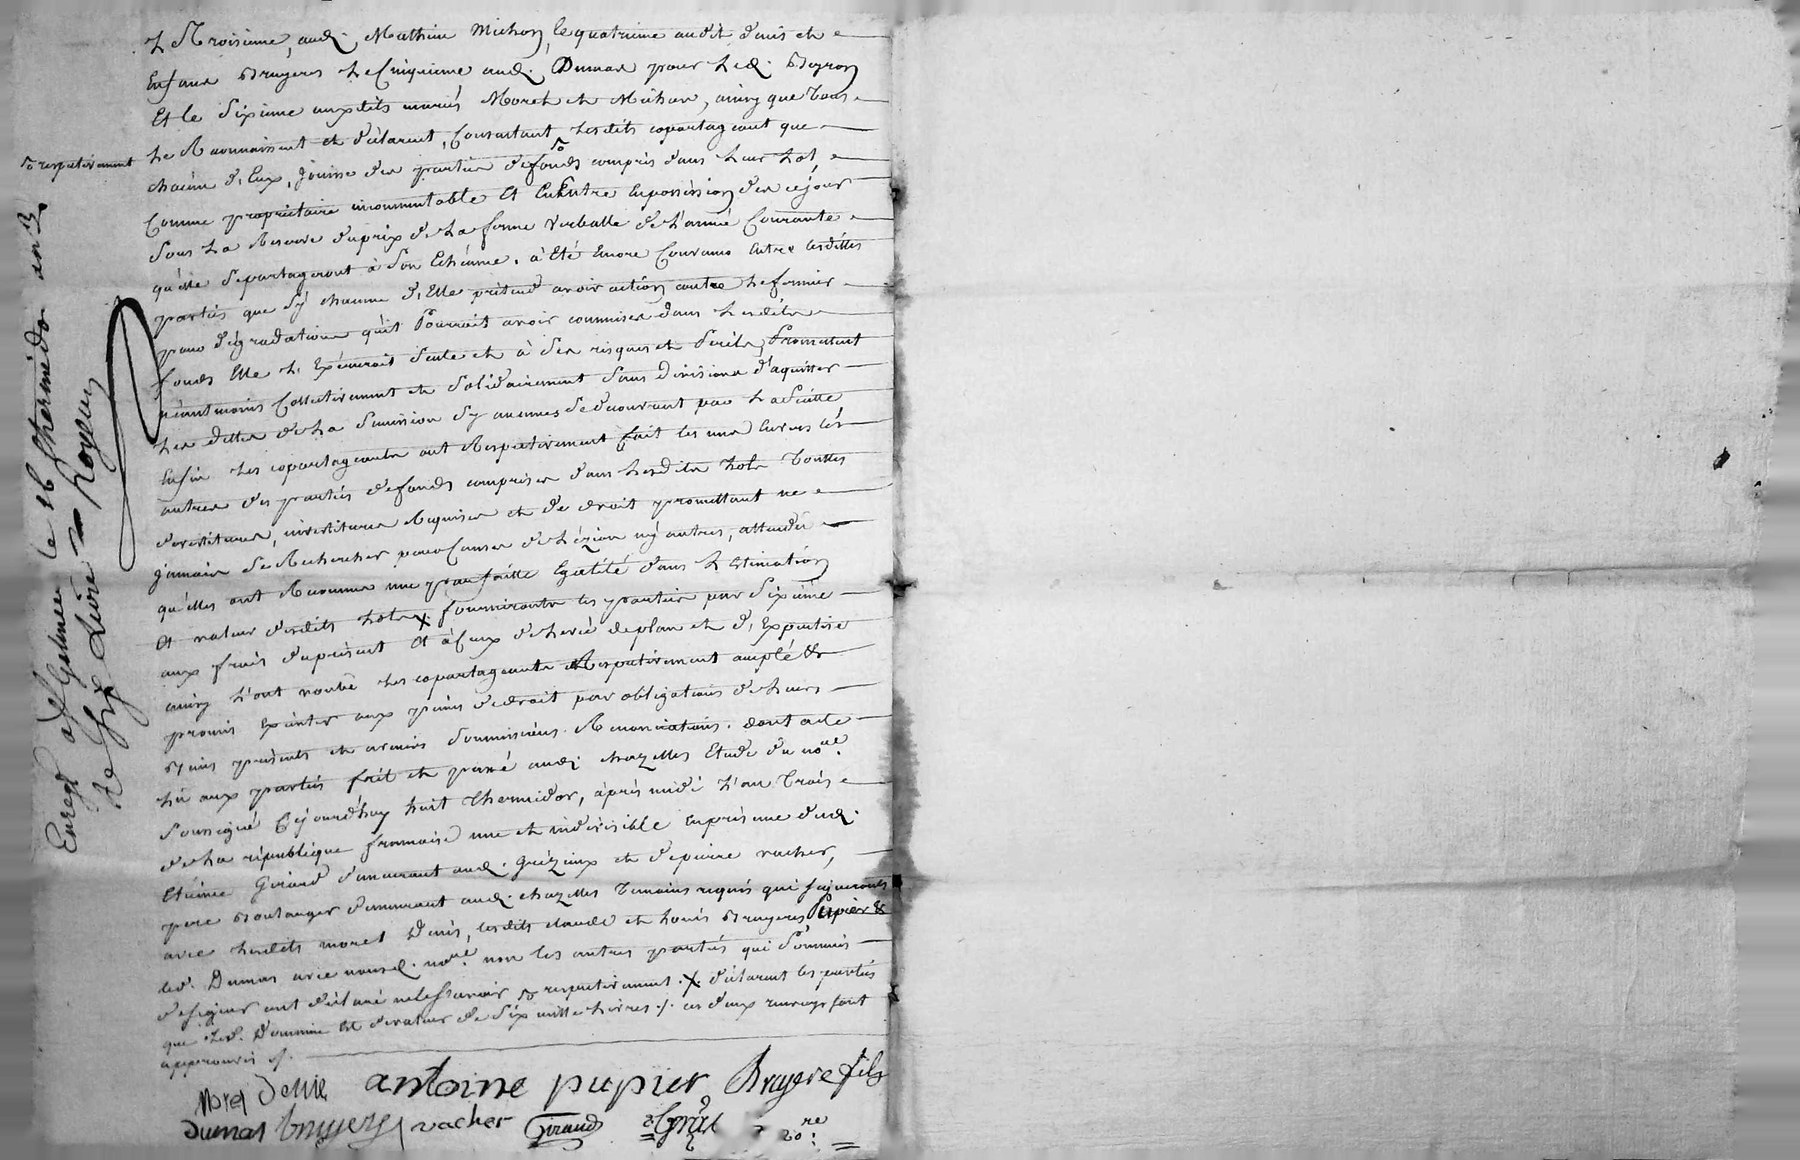 Le Troisieme, aud. Mathieu Michon, le quatrieme audit Denis et
Enfans Bruyeres Le Cinquieme aud. Dumas pour Led. Boyron
Et le Sixieme auxdits mariés Morel et Michon, ainsy que Tous
Le Reconnaissent et déclarent, Consentant Lesdits copartageant que
chacun d'Eux, Jouisse des parties de fonds compris dans Leur Lot,
Comme propriétaire incommutable Et Entre En possession des ce jour
Sous La Reserve du prix de La ferme verballe de L'année Courante
qu'elle Se partageront à Son Echéance. à Eté Encore Convenu Entre lesdittes
parties que Sy chacune d'Elle prétend avoir action contre Le fermier
pour dégradations qu'il Pourrait avoir commises dans Lesdits
fonds Elle L'Exercerait Seule et à Ses risques et Périls, Promettent
néantmoins Collectivement et Solidairement Sans Divisions d'aquitter
Les dettes de La Simission Sy aucunes Se découvrent par La Suitte
Enfin Les copartageants ont Respectivement fait les uns Envers les
autres des parties de fonds comprises dans Lesdits Lots Touttes
devestitures, investitures Requises et de droit promettant ne
Jamais Se Rechercher pour Cause de Lézion ny autres, attendu
qu'elles ont Reconnue une parfaitte Egalité dans L'Estimation
Et valeur desdits Lots X. fourniront les parties par Sixième
aux frais du présent Et à Ceux de Levée de plan et d'Expertise
ainsy L'ont voulu Les copartageants Respectivement accepté &
promis Exécuter aux peines de droit par obligations de Leurs
Biens présents et avenirs Soumissions Renonciations. dont acte
Lu aux parties fait et passé aud. chazelles Etude du nore.
Soussigné Cejourd'huy huit Thermidor, après midi L'an Trois
de La république francaise une et indivisible En présence d'ud.
Etienne Girard demeurant aud. Grézieux et de pierre vacher,
pere Boulanger demeurant aud. chazelles Temoins requis qui signeronts
avec Lesdits morel Denis, lesdits claude et Louis Bruyeres Pupier &
led. Dumas avec nousd. nore. non les autres parties qui Sommés
de signer ont déclaré ne le Savoir so respectivement. X. déclarant les parties
que Led. Domaine Est de valeur de Six mille Livres ./. ces deux renvoys sont
approuvés ./.
so respectivement
Enregé a Galmier le 16 thermidor an 3
Re Six Livre
Royer
Morel Denis antoine pupier Bruyere fils
Dumas bruyere vacher Girard